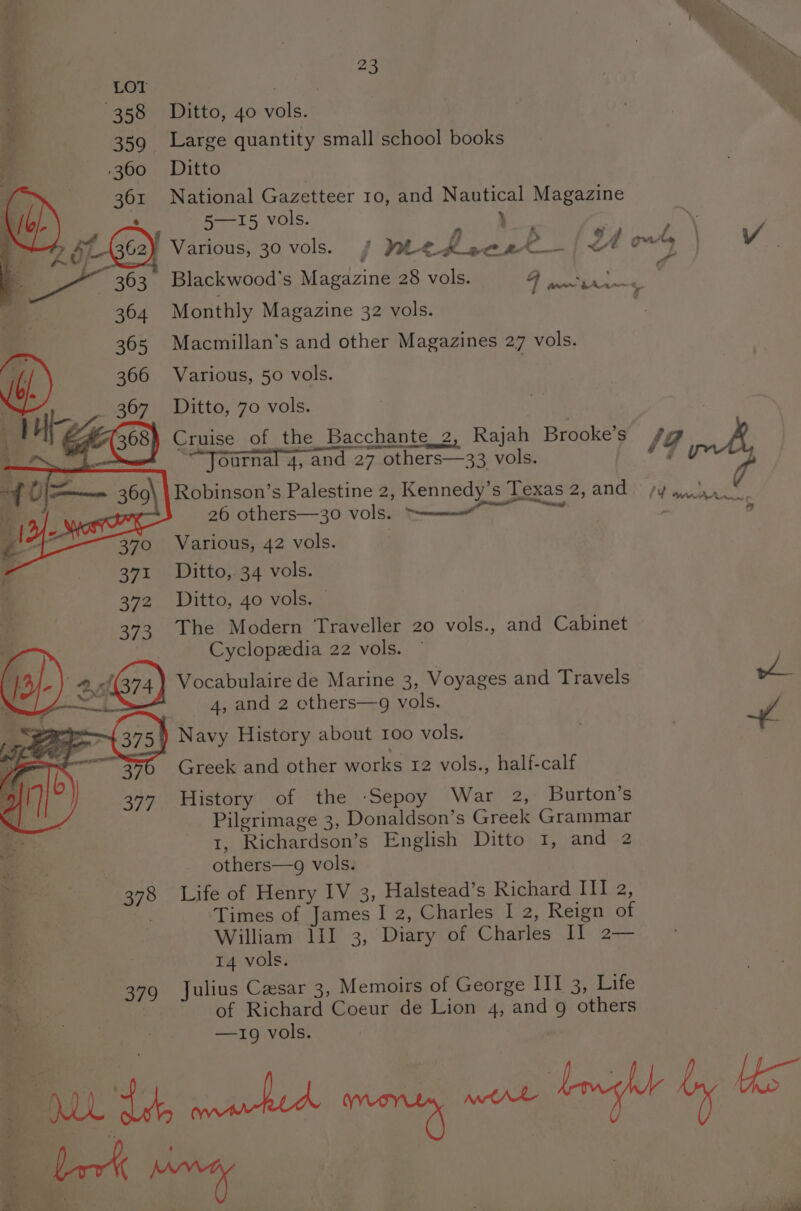 23
LOT
358 Ditto, 40 vols.
359 Large quantity small school books
360 Ditto
361 National Gazetteer 10, and Nautical Magazine
5—15 vols.
16/-
362 Various, 30 vols. only
363 Blackwood's Magazine 28 vols.
364 Monthly Magazine 32 vols.
365 Macmillan's and other Magazines 27 vols.
366 Various, 50 vols.
16/-
367 Ditto, 70 vols.
368 Cruise of the Bacchante 2, Rajah Brooke's
Journal 4, and 27 others—33 vols.
369 Robinson's Palestine 2, Kennedy's Texas 2, and
26 others—30 vols.
370 Various, 42 vols.
371 Ditto, 34 vols.
372 Ditto, 40 vols.
373 The Modern Traveller 20 vols., and Cabinet
Cyclopædia 22 vols.
13/- 374 Vocabulaire de Marine 3, Voyages and Travels
4, and 2 others—9 vols.
375 Navy History about 100 vols.
376 Greek and other works 12 vols., half-calf
377 History of the Sepoy War 2, Burton's
Pilgrimage 3, Donaldson's Greek Grammar
1, Richardson's English Ditto 1, and 2
others—9 vols.
378 Life of Henry IV 3, Halstead's Richard III 2,
Times of James I 2, Charles I 2, Reign of
William III 3, Diary of Charles II 2—
14 vols.
379 Julius Cæsar 3, Memoirs of George III 3, Life
of Richard Coeur de Lion 4, and 9 others
—19 vols.
All Lots marked money were bought by the
book ring